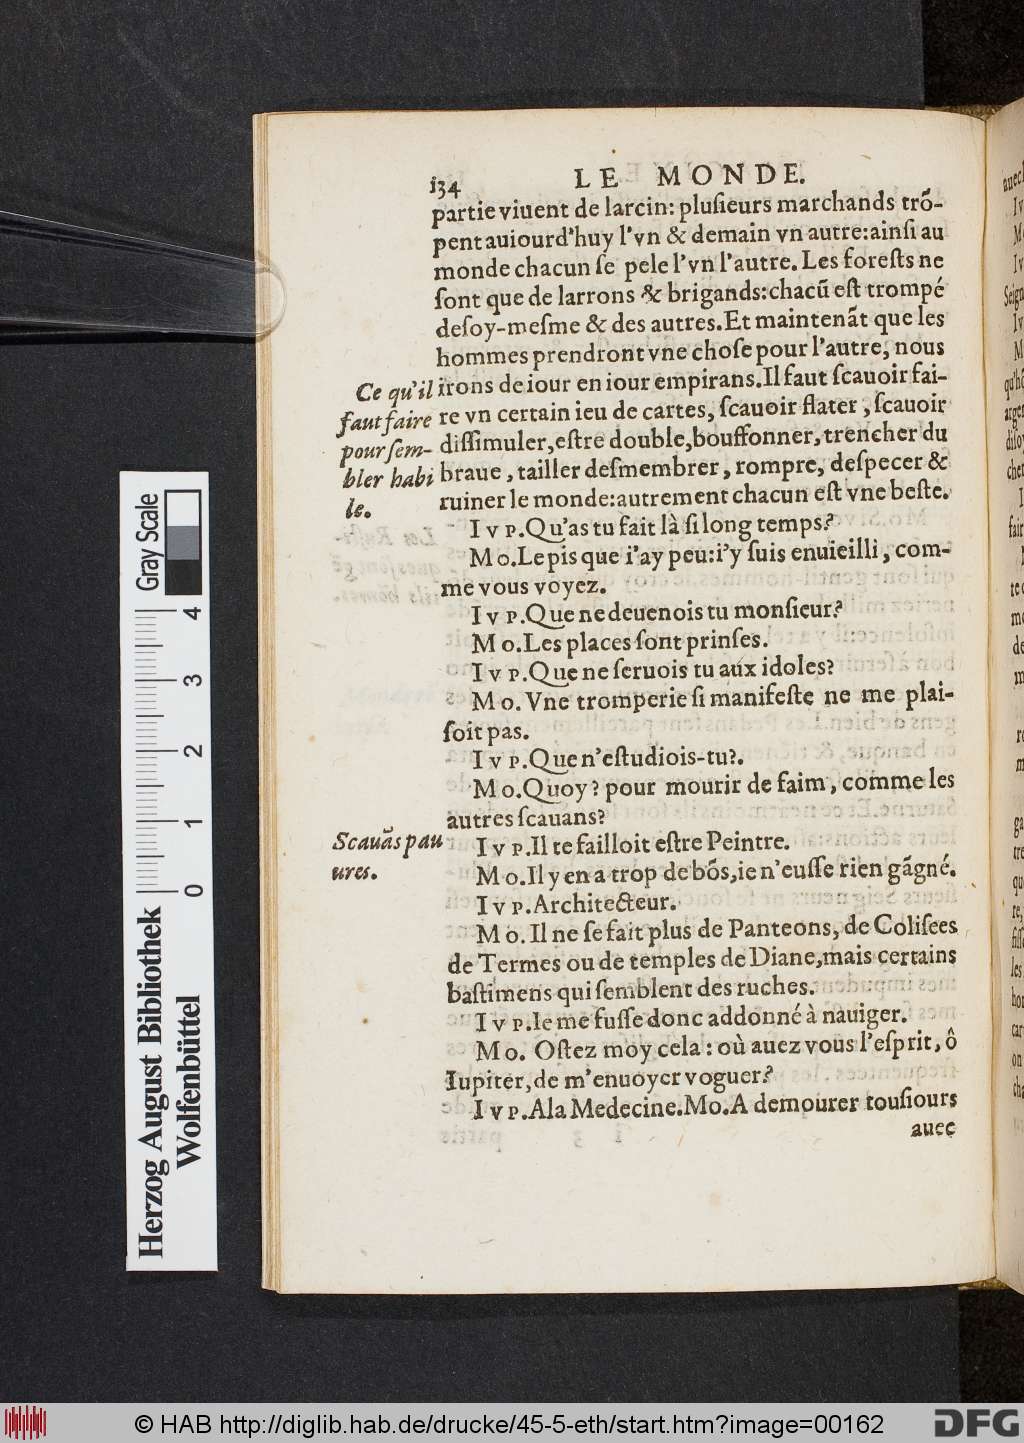 134 LE MONDE.
partie viuent de larcin: pluſieurs marchands trõ-
pent auiourd'huy l'vn & demain vn autre:ainſi au
monde chacun ſe pele l'vn l'autre. Les foreſts ne
ſont que de larrons & brigands:chacũ eſt trompé
deſoy-meſme & des autres.Et maintenãt que les
hommes prendront vne choſe pour l'autre, nous
irons de iour en iour empirans.Il faut ſcauoir fai-
re vn certain ieu de cartes, ſcauoir flater, ſcauoir
diſſimuler,eſtre double,bouffonner,trencher du
braue, tailler deſmembrer, rompre, deſpecer &
ruiner le monde:autrement chacun eſt vne beſte.
Ce qu'il
faut faire
pour ſem-
bler habi
le.
IVP.Qu'as tu fait là ſi long temps?
MO.Le pis que i'ay peu:i'y ſuis enuieilli, com-
me vous voyez.
IVP.Que ne deuenois tu monſieur?
MO.Les places ſont prinſes.
IVP.Que ne ſeruois tu aux idoles?
MO. Vne tromperie ſi manifeſte ne me plai-
ſoit pas.
IVP.Que n'eſtudiois-tu?.
MO.Quoy? pour mourir de faim, comme les
autres ſcauans?
Scauãs pau
ures.
IVP.Il te failloit eſtre Peintre.
MO.Il y en a trop de bõs,ie n'euſſe rien gãgné.
IVP.Architecteur.
MO. Il ne ſe fait plus de Panteons, de Coliſees
de Termes ou de temples de Diane,mais certains
baſtimens qui ſemblent des ruches.
IVP.Ie me fuſſe donc addonné à nauiger.
MO. Oſtez moy cela: où auez vous l'eſprit, ô
Iupiter,de m'enuoyer voguer?
IVP.A la Medecine.MO.A demourer touſiours
auec
Herzog August Bibliothek
Wolfenbüttel
Gray Scale
0 1 2 3 4
© HAB http://diglib.hab.de/drucke/45-5-eth/start.htm?image=00162
DFG